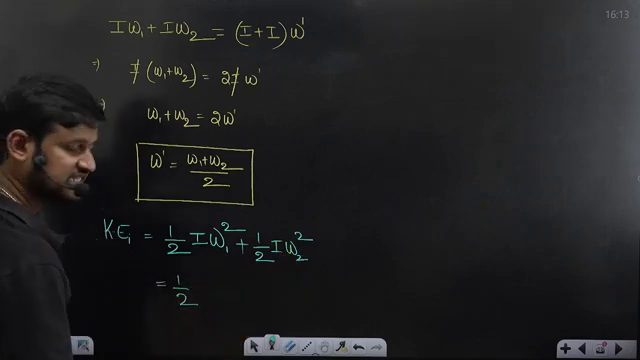 16:13
Iω₁ + Iω₂ = (I + I) ω'
⇒ I (ω₁+ω₂) = 2I ω'
ω₁ + ω₂ = 2ω'
ω' = (ω₁+ω₂)/2
KEᵢ = 1/2 Iω₁² + 1/2 Iω₂²
= 1/2